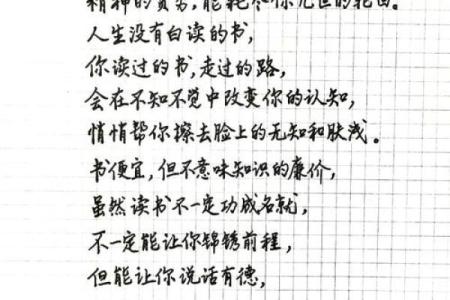 精神的贫穷,能耗尽你几世的轮回。
人生没有白读的书,
你读过的书,走过的路,
会在不知不觉中改变你的认知,
悄悄帮你擦去脸上的无知和肤浅。
书便宜,但不意味知识的廉价,
虽然读书不一定功成名就,
不一定能让你锦锈前程,
但能让你说话有德,